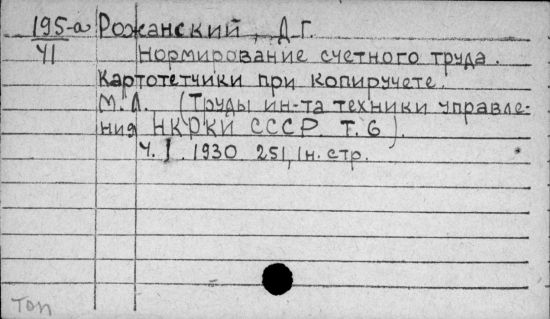 195-а Рожанский, Д.Г.
VI Нормирование счетного труда.
Картотетчики при копиручете.
М.Л. (Труды ин-та техники управле-
ния НКРКИ СССР. Т. 6).
Ч. I. 1930 251, 1н. стр.
Топ